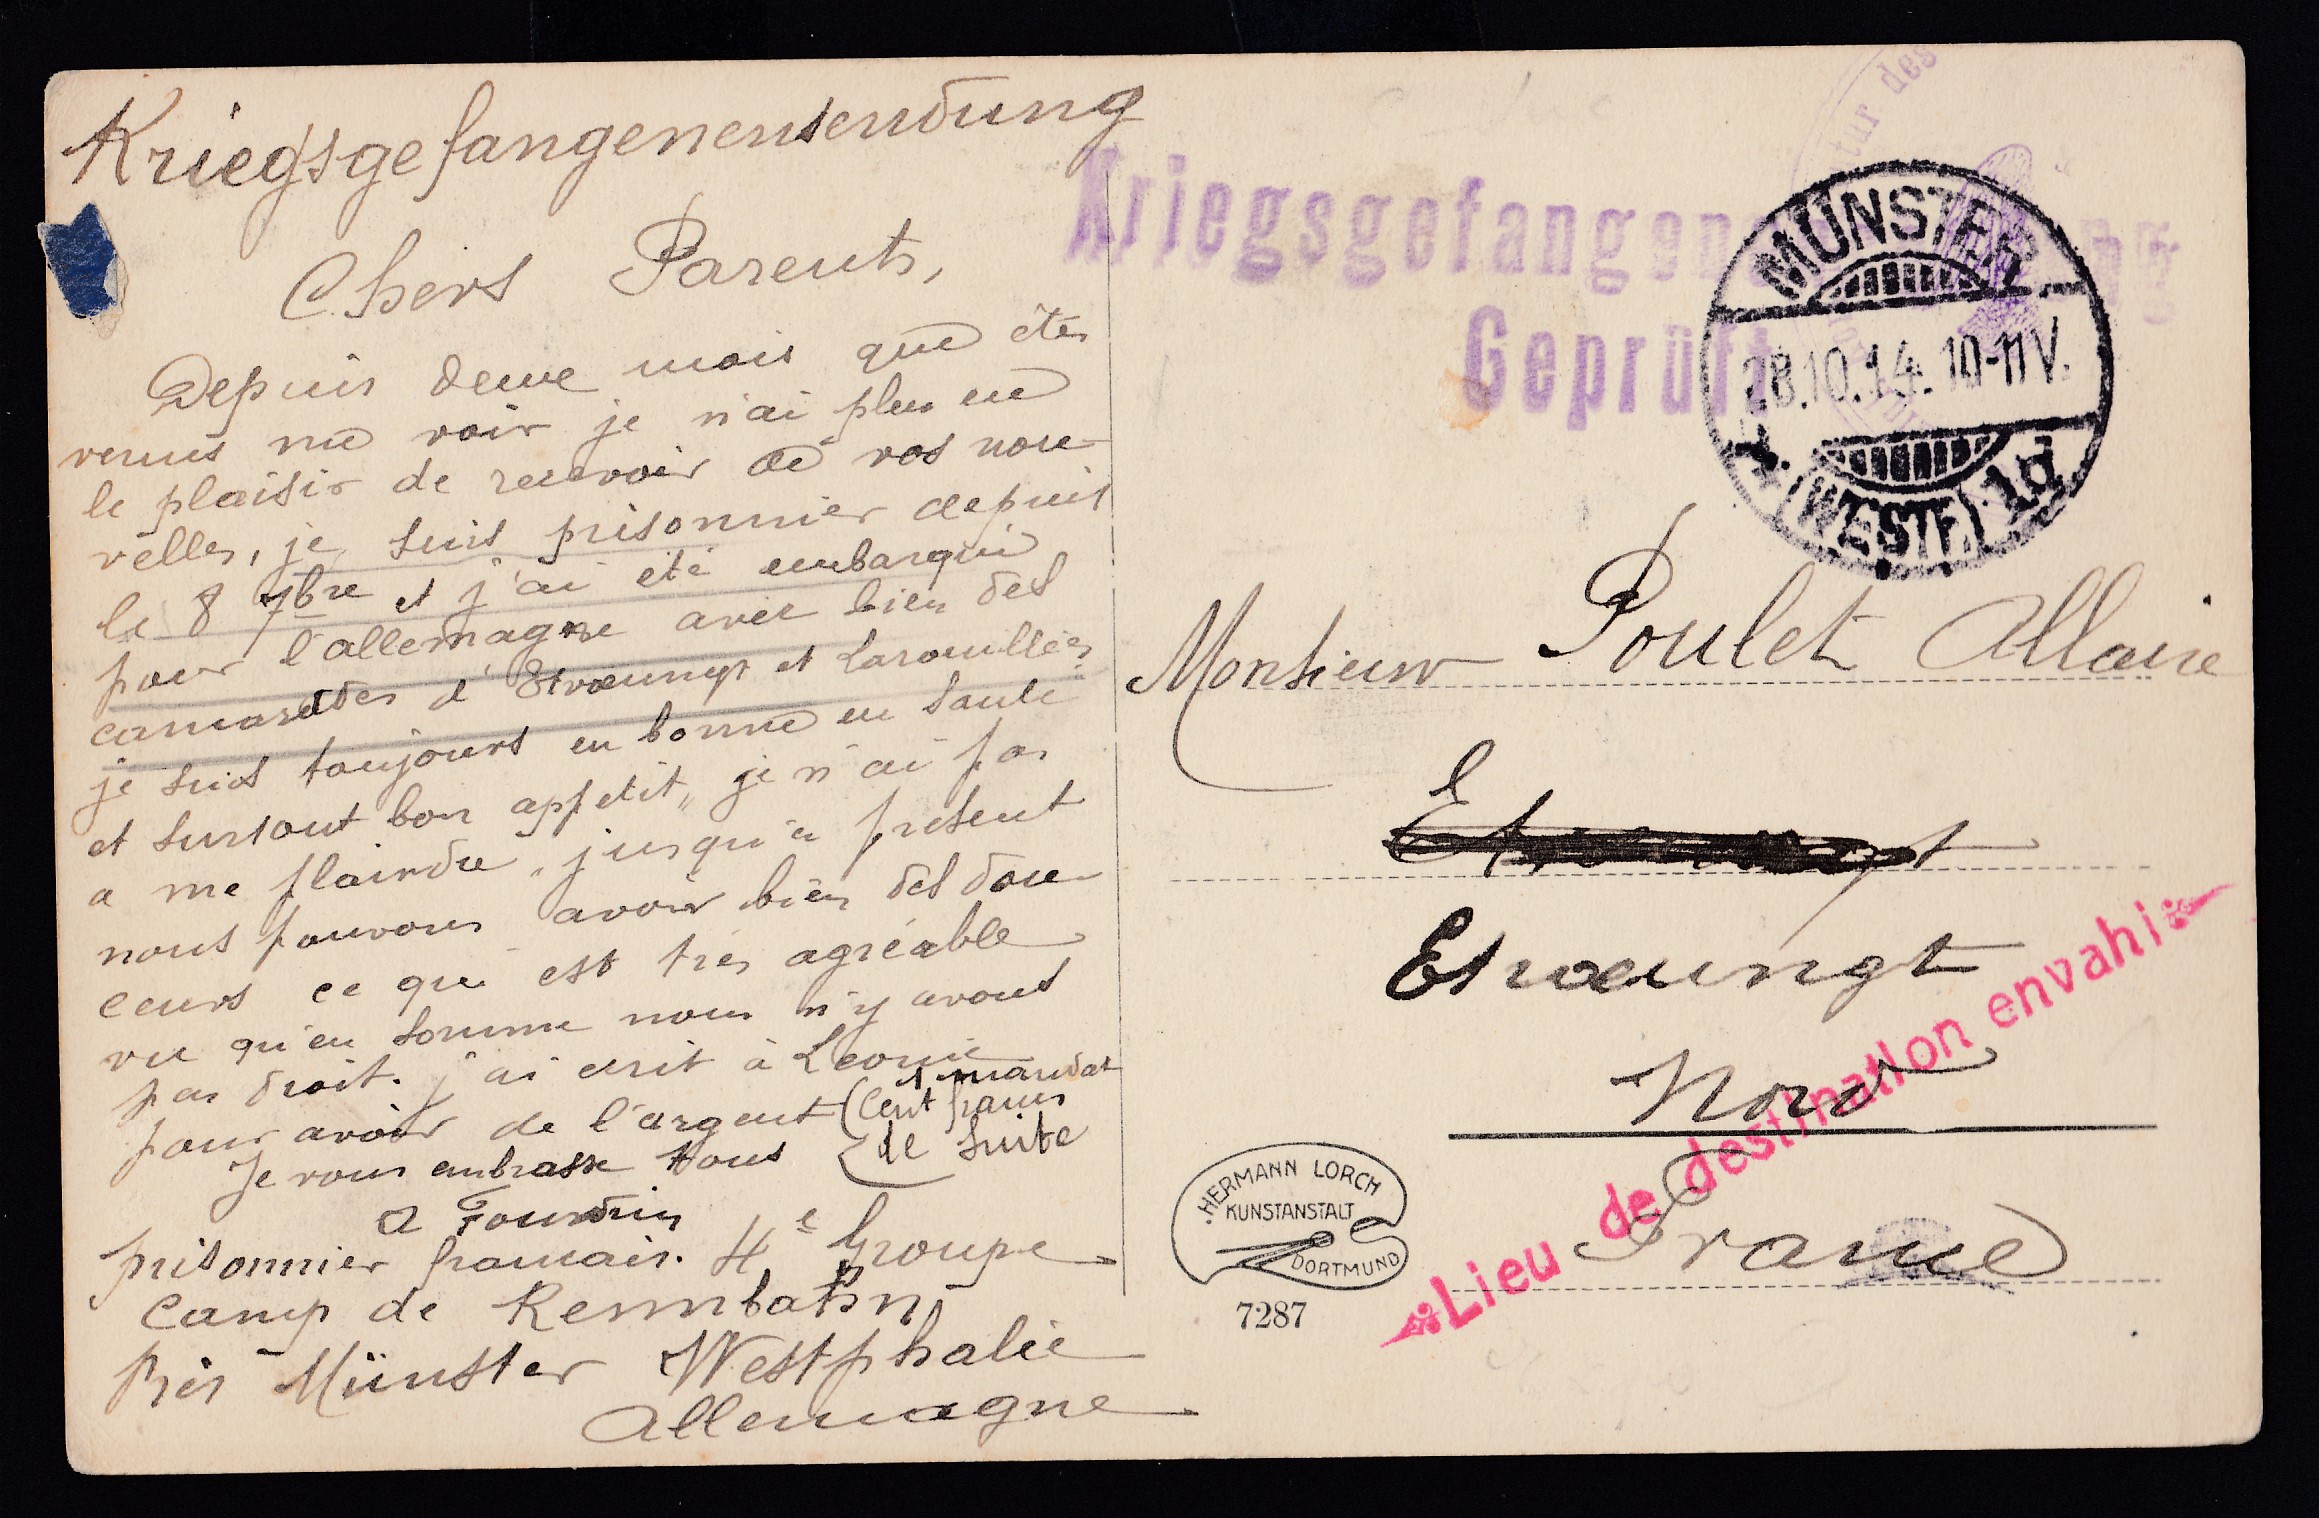 Kriegsgefangenensendung
Chers Parents,
Depuis deux mois que êtes
venus me voir je n'ai plus eu
le plaisir de recevoir de vos nou-
velles, je suis prisonnier depuis
le 8 7bre et j'ai été embarqué
pour l'allemagne avec bien des
camarades d'Etroeungt et Larouillies
je suis toujours en bonne en santé
et surtout bon appetit, je n'ai pas
a me plaindre, jusqu'à présent
nous pouvons avoir bien des dou-
ceurs ce qui est très agréable
vu qu'en somme nous n'y avons
pas droit. j'ai ecrit à Leonie
pour avoir de l'argent (Cent francs
mandat
de suite
Je vous embrasse tous
a Fourdrin
prisonnier francais. 4e Groupe
Camp de Rennbahn
Près Münster Westphalie
Allemagne
Kriegsgefangenen
Geprüft
tur des
MÜNSTER
28.10.14. 10-11V.
(WESTF.) 1d
Monsieur Poulet Allaire
Etroeungt
Nord
France
Lieu de destination envahi
HERMANN LORCH
KUNSTANSTALT
DORTMUND
7287